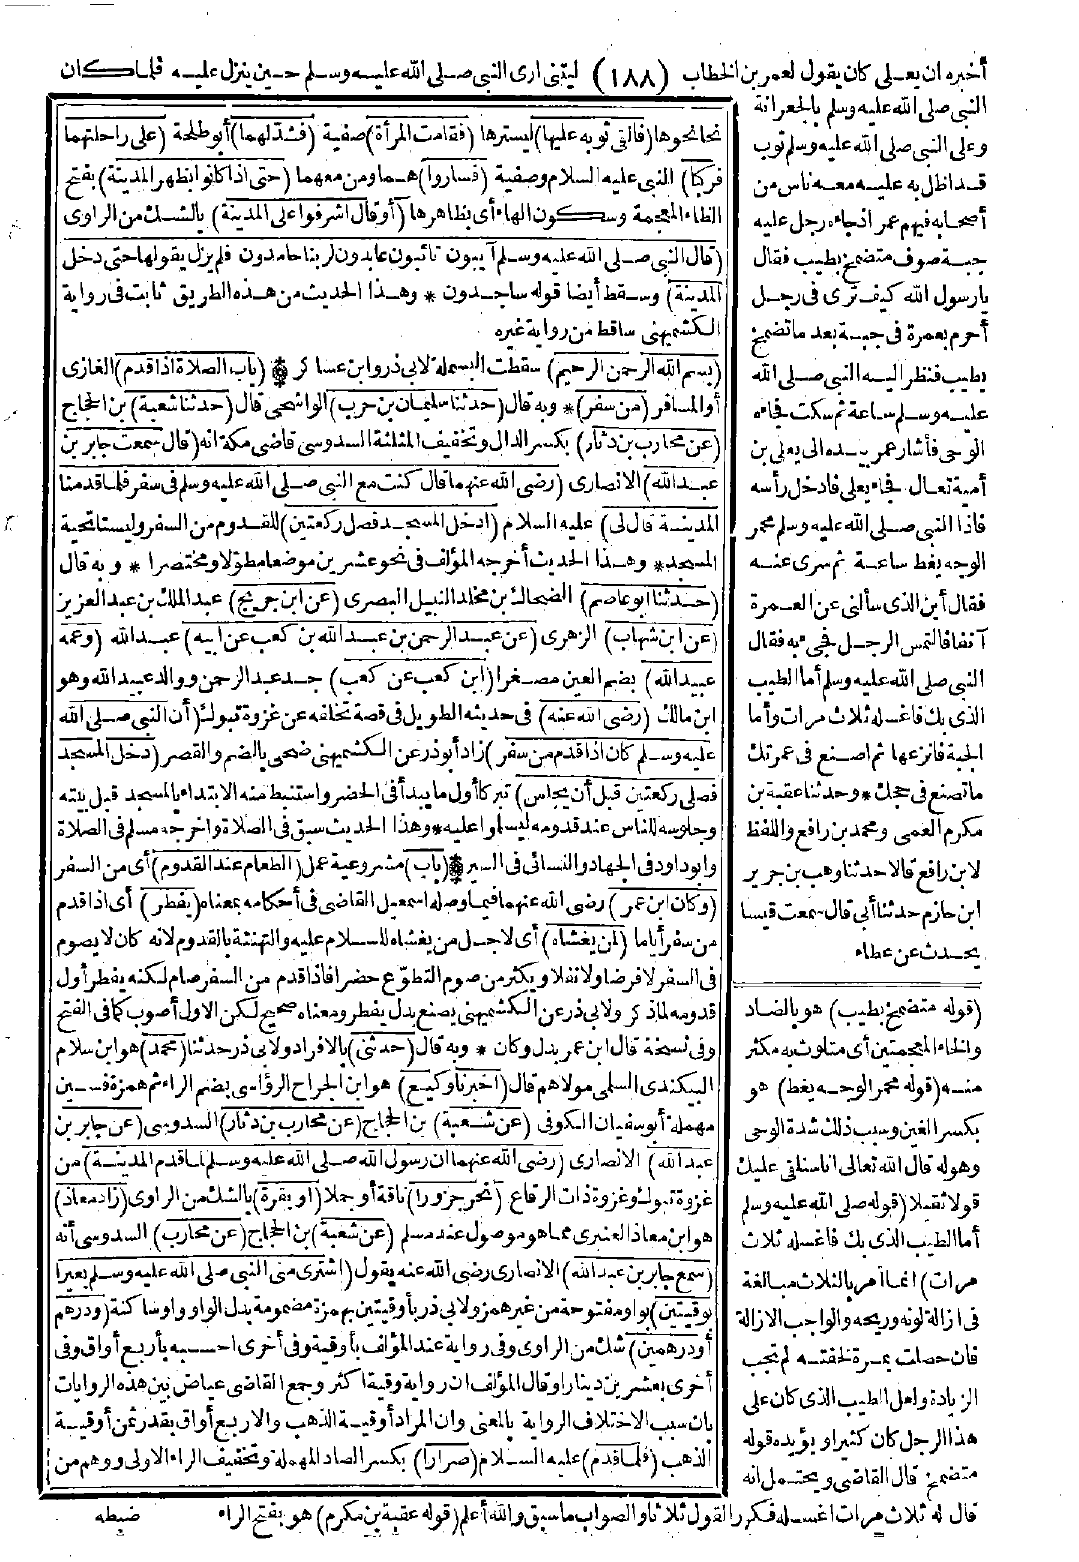 أخبره ان يعلى كان يقول لعمر بن الخطاب (١٨٨) ليتنى ارى النبى صلى الله عليه وسلم حين ينزل عليه فلما كان
النبى صلى الله عليه وسلم بالجعرانة
وعلى النبى صلى الله عليه وسلم ثوب
قد اظل به عليه معه ناس من
أصحابه فيهم عمر اذ جاءه رجل عليه
جبة صوف متضمخ بطيب فقال
يا رسول الله كيف ترى فى رجل
أحرم بعمرة فى جبة بعد ما تضمخ
بطيب فنظر اليه النبى صلى الله
عليه وسلم ساعة ثم سكت فجاءه
الوحى فأشار عمر بيده الى يعلى بن
أمية تعال فجاء يعلى فادخل رأسه
فاذا النبى صلى الله عليه وسلم محمر
الوجه يغط ساعة ثم سرى عنه
فقال أين الذى سألنى عن العمرة
آنفا فالتمس الرجل فجىء به فقال
النبى صلى الله عليه وسلم أما الطيب
الذى بك فاغسله ثلاث مرات وأما
الجبة فانزعها ثم اصنع فى عمرتك
ما تصنع فى حجك * وحدثنا عقبة بن
مكرم العمى ومحمد بن رافع واللفظ
لابن رافع قالا حدثنا وهب بن جرير
ابن حازم حدثنا أبى قال سمعت قيسا
يحدث عن عطاء
(قوله متضمخ بطيب) هو بالضاد
والخاء المعجمتين أى متلوث به مكثر
منه (قوله محمر الوجه يغط) هو
بكسر الغين وسبب ذلك شدة الوحى
وهوله قال الله تعالى اناسنلقى عليك
قولا ثقيلا (قوله صلى الله عليه وسلم
أما الطيب الذى بك فاغسله ثلاث
مرات) انما أمر بالثلاث مبالغة
فى ازالة لونه وريحه والواجب الازالة
فان حصلت بمرة لخفته لم تجب
الزيادة ولعل الطيب الذى كان على
هذا الرجل كان كثيرا ويؤيده قوله
متضمخ قال القاضى ويحتمل انه
قال له ثلاث مرات اغسله فكرر القول ثلاثا والصواب ما سبق والله أعلم (قوله عقبة بن مكرم) هو بفتح الراء
ضبطه
نحا نحوها (فالقى ثوبه عليها) ليسترها (فقامت المرأة) صفية (فشد لهما) أبو طلحة (على راحلتهما
فركبا) النبى عليه السلام وصفية (فساروا) هما ومن معهما (حتى اذا كانوا بظهر المدينة) بفتح
الظاء المعجمة وسكون الهاء أى بظاهرها (أو قال اشرفوا على المدينة) بالشك من الراوى
(قال النبى صلى الله عليه وسلم آيبون تائبون عابدون لربنا حامدون فلم يزل يقولها حتى دخل
المدينة) وسقط أيضا قوله ساجدون * وهذا الحديث من هذه الطريق ثابت فى رواية
الكشميهنى ساقط من رواية غيره
(بسم الله الرحمن الرحيم) سقطت البسملة لابى ذر وابن عساكر * (باب الصلاة اذا قدم) الغازى
أو المسافر (من سفر) * وبه قال (حدثنا سليمان بن حرب) الواشحى قال (حدثنا شعبة) بن الحجاج
(عن محارب بن دثار) بكسر الدال وتخفيف المثلثة السدوسى قاضى مكة انه (قال سمعت جابر بن
عبد الله) الانصارى (رضى الله عنهما قال كنت مع النبى صلى الله عليه وسلم فى سفر فلما قدمنا
المدينة قال لى) عليه السلام (ادخل المسجد فصل ركعتين) للقدوم من السفر وليستا تحية
المسجد * وهذا الحديث أخرجه المؤلف فى نحو عشرين موضعا مطولا ومختصرا * وبه قال
(حدثنا ابو عاصم) الضحاك بن مخلد النبيل البصرى (عن ابن جريج) عبد الملك بن عبد العزيز
(عن ابن شهاب) الزهرى (عن عبد الرحمن بن عبد الله بن كعب عن ابيه) عبد الله (وعمه
عبيد الله) بضم العين مصغرا (ابن كعب عن كعب) جد عبد الرحمن ووالد عبيد الله وهو
ابن مالك (رضى الله عنه) فى حديثه الطويل فى قصة تخلفه عن غزوة تبوك (أن النبى صلى الله
عليه وسلم كان اذا قدم من سفر) زاد أبو ذر عن الكشميهنى ضحى بالضم والقصر (دخل المسجد
فصلى ركعتين قبل أن يجلس) تبركا أول ما يبدأ فى الحضر واستنبط منه الابتداء بالمسجد قبل بيته
وجلوسه للناس عند قدومه ليسلموا عليه * وهذا الحديث سبق فى الصلاة واخرجه مسلم فى الصلاة
وابو داود فى الجهاد والنسائى فى السير * (باب) مشروعية عمل (الطعام عند القدوم) أى من السفر
(وكان ابن عمر) رضى الله عنهما فيما وصله اسمعيل القاضى فى أحكامه بمعناه (يفطر) أى اذا قدم
من سفر أياما (لمن يغشاه) أى لاجل من يغشاه للسلام عليه والتهنئة بالقدوم لانه كان لا يصوم
فى السفر لا فرضا ولا نفلا ويكثر من صوم التطوع حضرا فاذا قدم من السفر صام لكنه يفطر أول
قدومه لما ذكر ولابى ذر عن الكشميهنى يصنع بدل يفطر ومعناه صحيح لكن الاول أصوب كما فى الفتح
وفى نسخة قال ابن عمر بدل وكان * وبه قال (حدثنى) بالافراد ولابى ذر حدثنا (محمد) هو ابن سلام
البيكندى السلمى مولاهم قال (اخبرنا وكيع) هو ابن الجراح الرؤاسى بضم الراء ثم همزة فسين
مهملة أبو سفيان الكوفى (عن شعبة) بن الحجاج (عن محارب بن دثار) السدوسى (عن جابر بن
عبد الله) الانصارى (رضى الله عنهما ان رسول الله صلى الله عليه وسلم لما قدم المدينة) من
غزوة تبوك وغزوة ذات الرقاع (نحر جزورا) ناقة أو جملا (أو بقرة) بالشك من الراوى (زاد معاذ)
هو ابن معاذ العنبرى مما هو موصول عند مسلم (عن شعبة) بن الحجاج (عن محارب) السدوسى أنه
(سمع جابر بن عبد الله) الانصارى رضى الله عنه يقول (اشترى منى النبى صلى الله عليه وسلم بعيرا
بوقيتين) بواو مفتوحة من غير همز ولابى ذر بأوقيتين بهمزة مضمومة بدل الواو واوسا كنة (ودرهم
أو درهمين) شك من الراوى وفى رواية عند المؤلف بأوقية وفى أخرى احسبه بأربع أواق وفى
أخرى بعشرين دينارا وقال المؤلف ان رواية وقية اكثر وجمع القاضى عياض بين هذه الروايات
بان سبب الاختلاف الرواية بالمعنى وان المراد أوقية الذهب والاربع أواق بقدر ثمن أوقية
الذهب (فلما قدم) عليه السلام (صرارا) بكسر الصاد المهملة وتخفيف الراء الاولى ووهم من